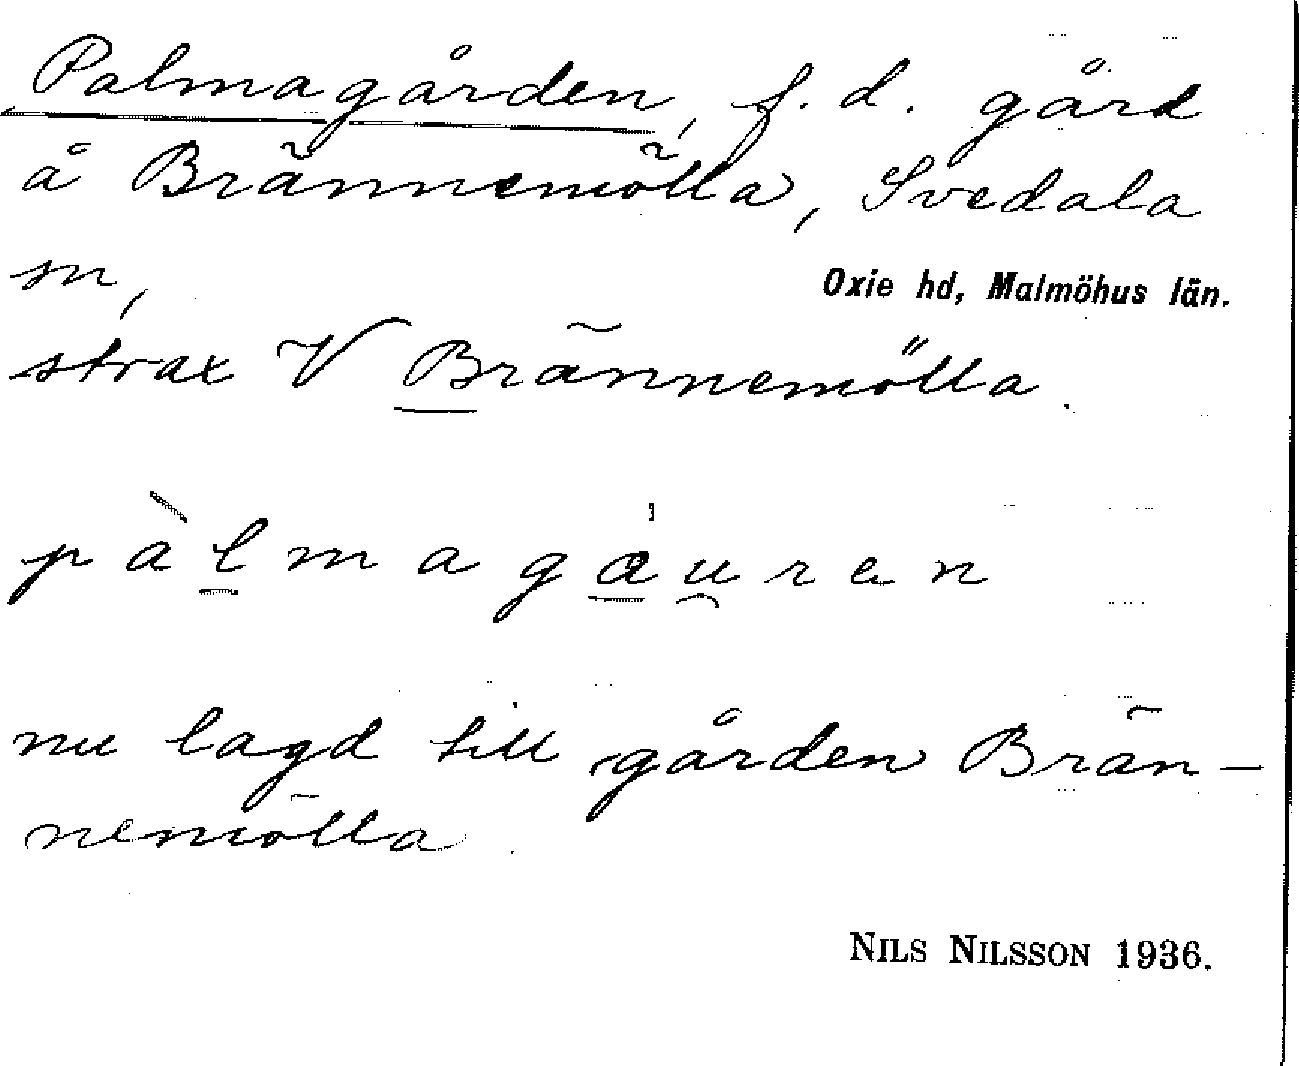 Palmagården, f. d. gård
å Brännemölla, Svedala
sn,
Oxie hd, Malmöhus län.
strax V Brännemölla.
pàlmagau̯ren
nu lagd till gården Brän-
nemölla.
NILS NILSSON 1936.